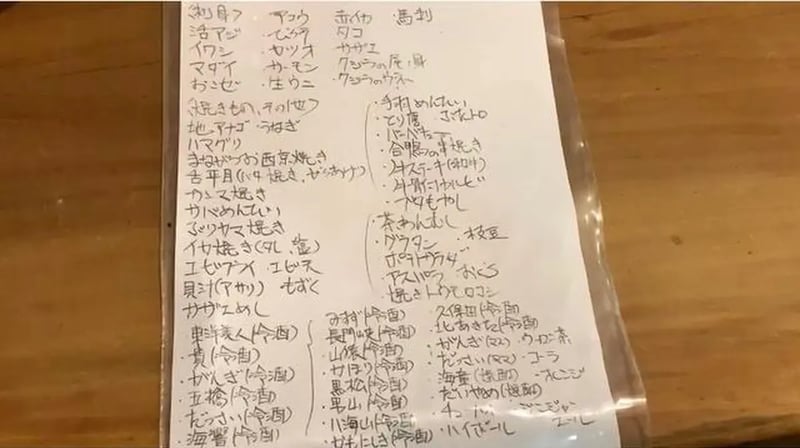 〈刺身〉 アコウ 赤イカ 馬刺
活アジ ・ヒラメ タコ
イワシ ・カツオ サザエ
マダイ サーモン クジラの尾の身
おこぜ ・生ウニ ・クジラのウネ
〈焼きもの、その他〉
地アナゴ ・うなぎ
ハマグリ
まながつお西京焼き
舌平目(バタ焼き、からあげ)
カマ焼き
めんたい
ぶりカマ焼き
イカ焼き(タレ、塩)
エビフライ ・エビ天
貝汁(アサリ) もずく
サザエめし
・手羽めんたい
・とり皮 ・ぶたトロ
・バーベキュー
・合鴨の串焼き
・牛ステーキ
・牛骨付カルビ
・ブタもやし
・茶わんむし
・グラタン ・枝豆
ポテトサラダ
アスパラ おくら
・焼きトウモロコシ
東洋美人(冷酒)
・貴(冷酒)
・がんぎ(冷酒)
・五橋(冷酒)
・だっさい(冷酒)
・海響(冷酒)
みすず(冷酒)
長門峡(冷酒)
・山猿(冷酒)
・かほり(冷酒)
・黒松(冷酒)
・男山(冷酒)
・八海山(冷酒)
・かもにしき(冷酒)
久保田(冷酒)
・北あきた(冷酒)
・がんぎ(マス) ・ウーロン茶
・だっさい(マス) ・コーラ
・海童(焼酎) ・オレンジ
・だいやめ(焼酎)
・ジンジャーエール
・ハイボール